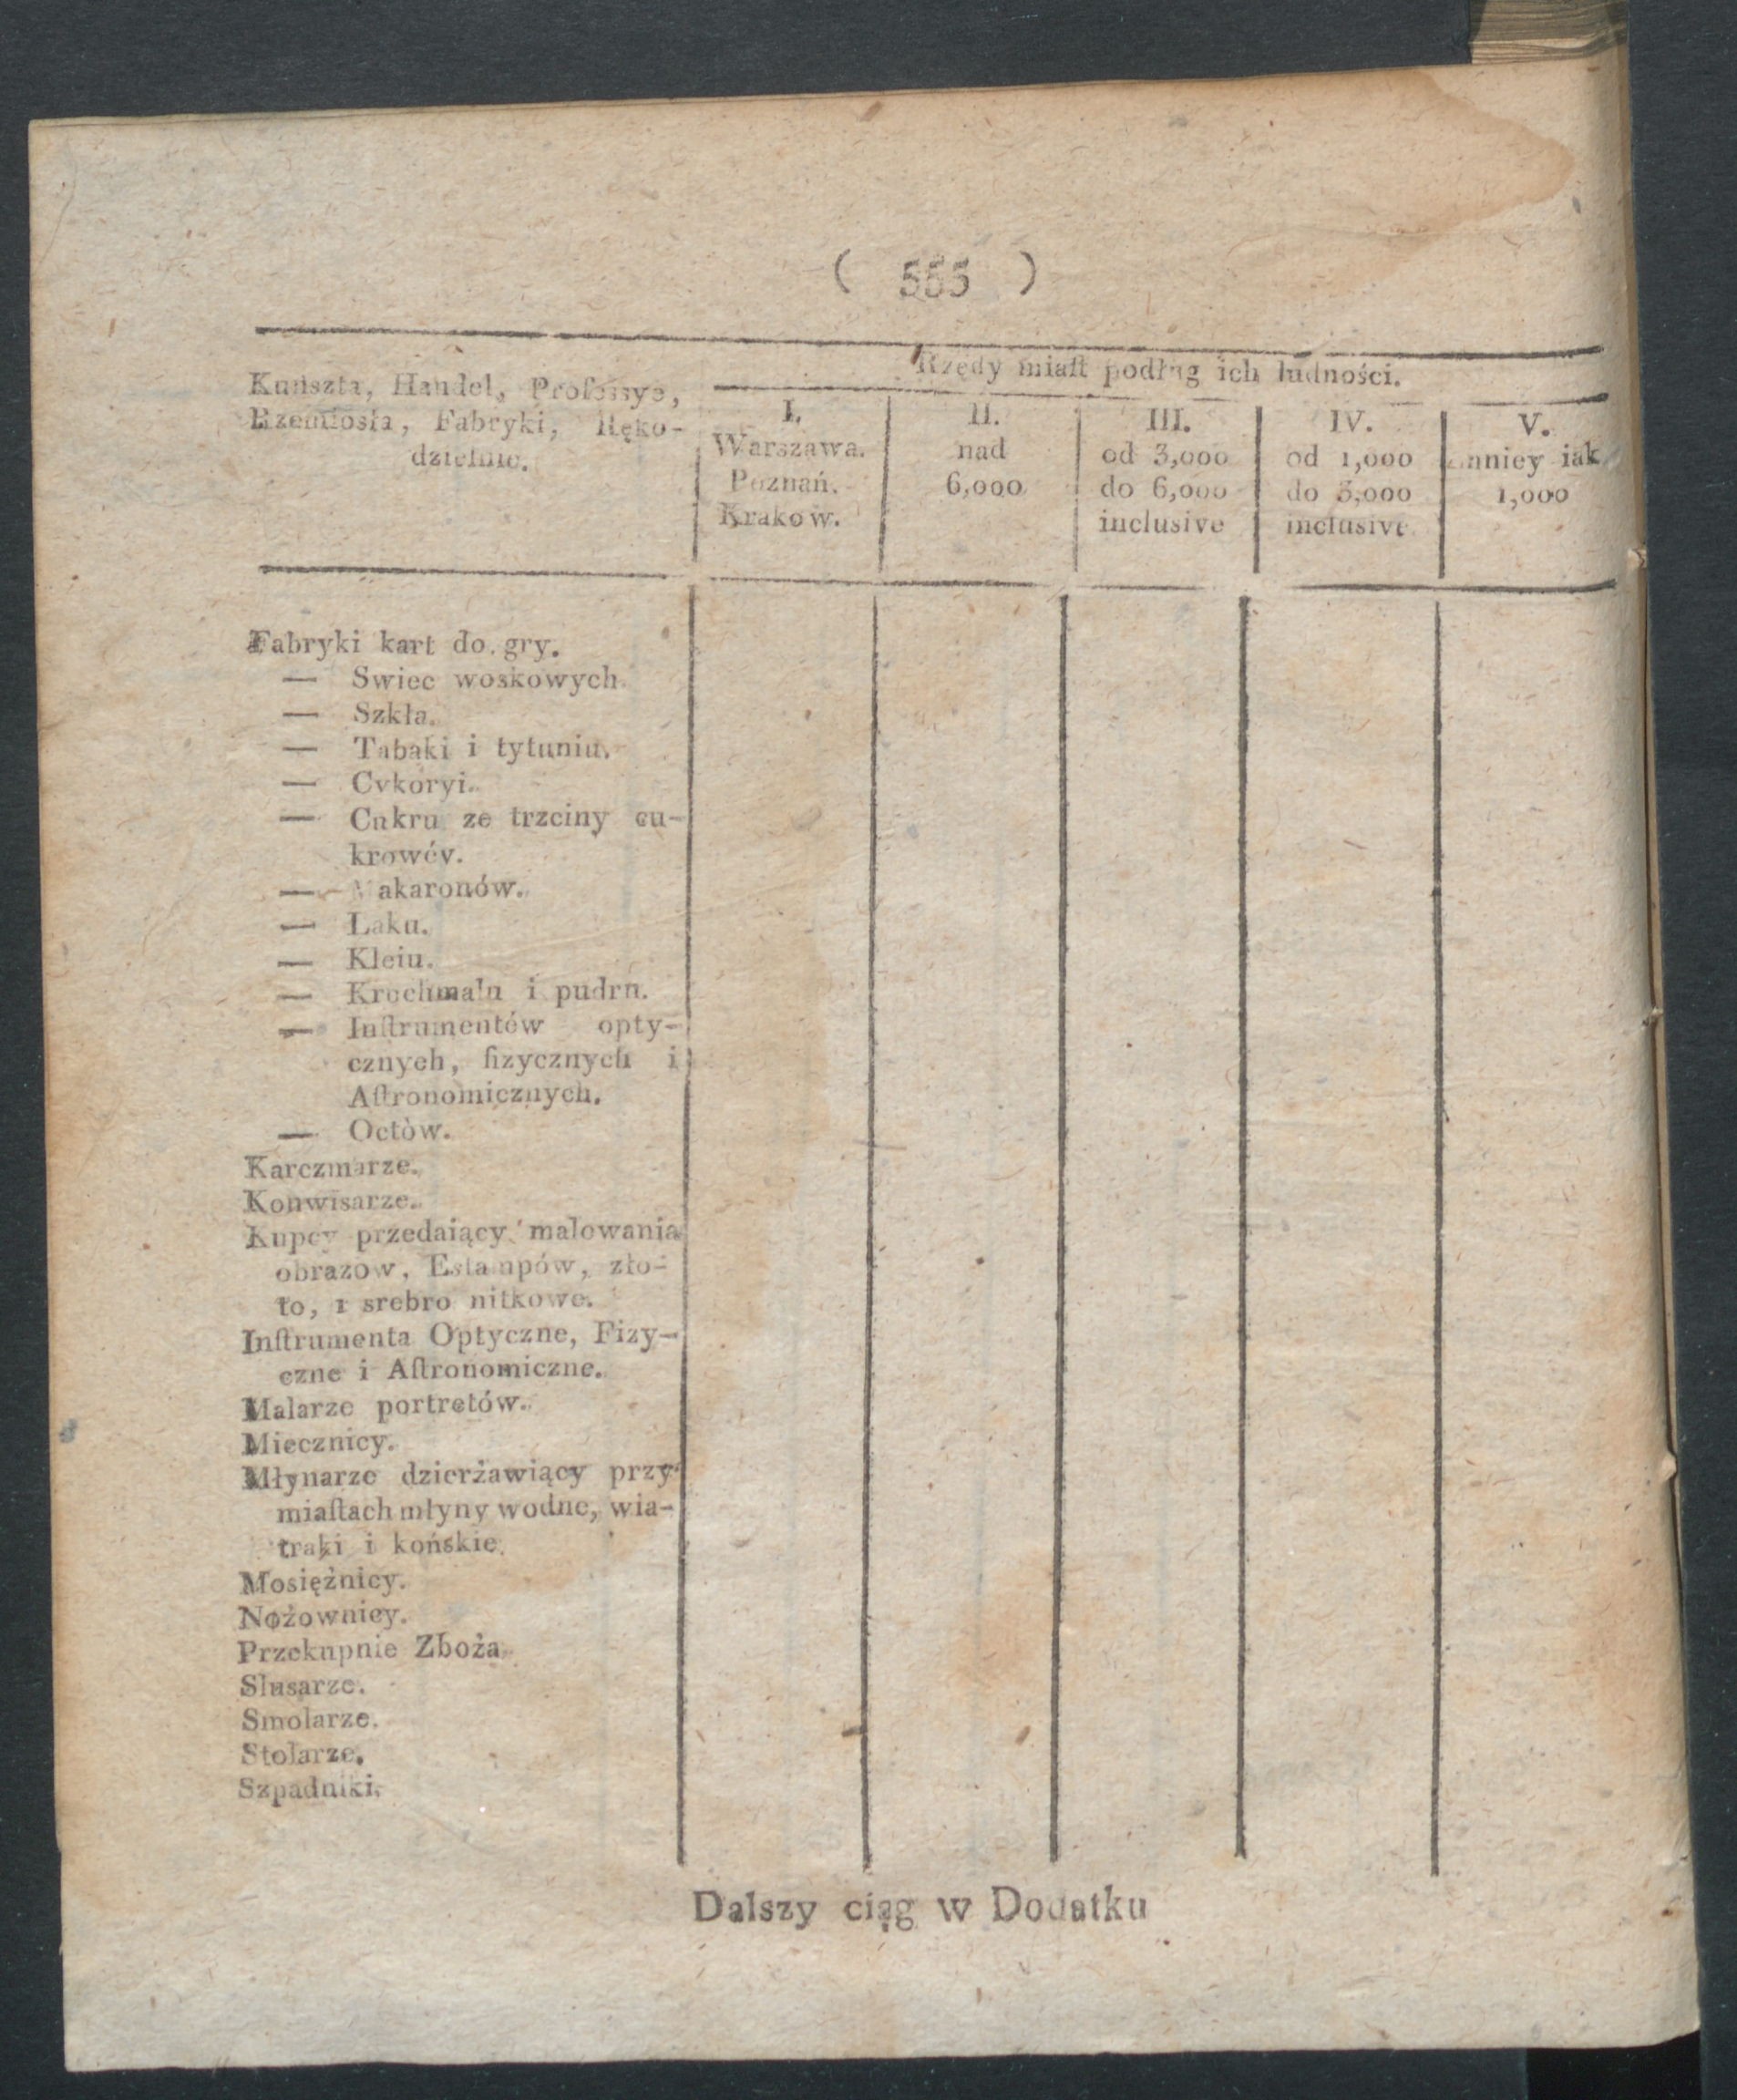 ( 555 )
Rzędy miaſt podług ich ludności.
Kunszta, Handel, Professye,
Rzemiosła, Fabryki, Ręko-
dzielnie.
I.
Warszawa.
Poznań.
Krakow.
II.
nad
6,000
III.
od 3,000
do 6,000
inclusive
IV.
od 1,000
do 3,000
inclusive
V.
mniey iak
1,000
Fabryki kart do gry.
— Swiec woskowych.
— Szkła.
— Tabaki i tytuniu.
— Cykoryi.
— Cukru ze trzciny cu-
krowéy.
— Makaronów.
— Laku.
— Kleiu.
— Krochmalu i pudru.
— Inſtrumentów opty-
cznych, fizycznych i
Aſtronomicznych.
— Octòw.
Karczmarze.
Konwisarze.
Kupcy przedaiący malowania
obrazow, Estampów, zło-
to, i srebro nitkowe.
Inſtrumenta Optyczne, Fizy-
czne i Aſtronomiczne.
Malarze portretów.
Miecznicy.
Młynarze dzierżawiący przy
miaſtach młyny wodne, wia-
traki i końskie.
Mosiężnicy.
Nożownicy.
Przekupnie Zboża.
Slusarze.
Smolarze.
Stolarze.
Szpadniki.
Dalszy ciąg w Dodatku